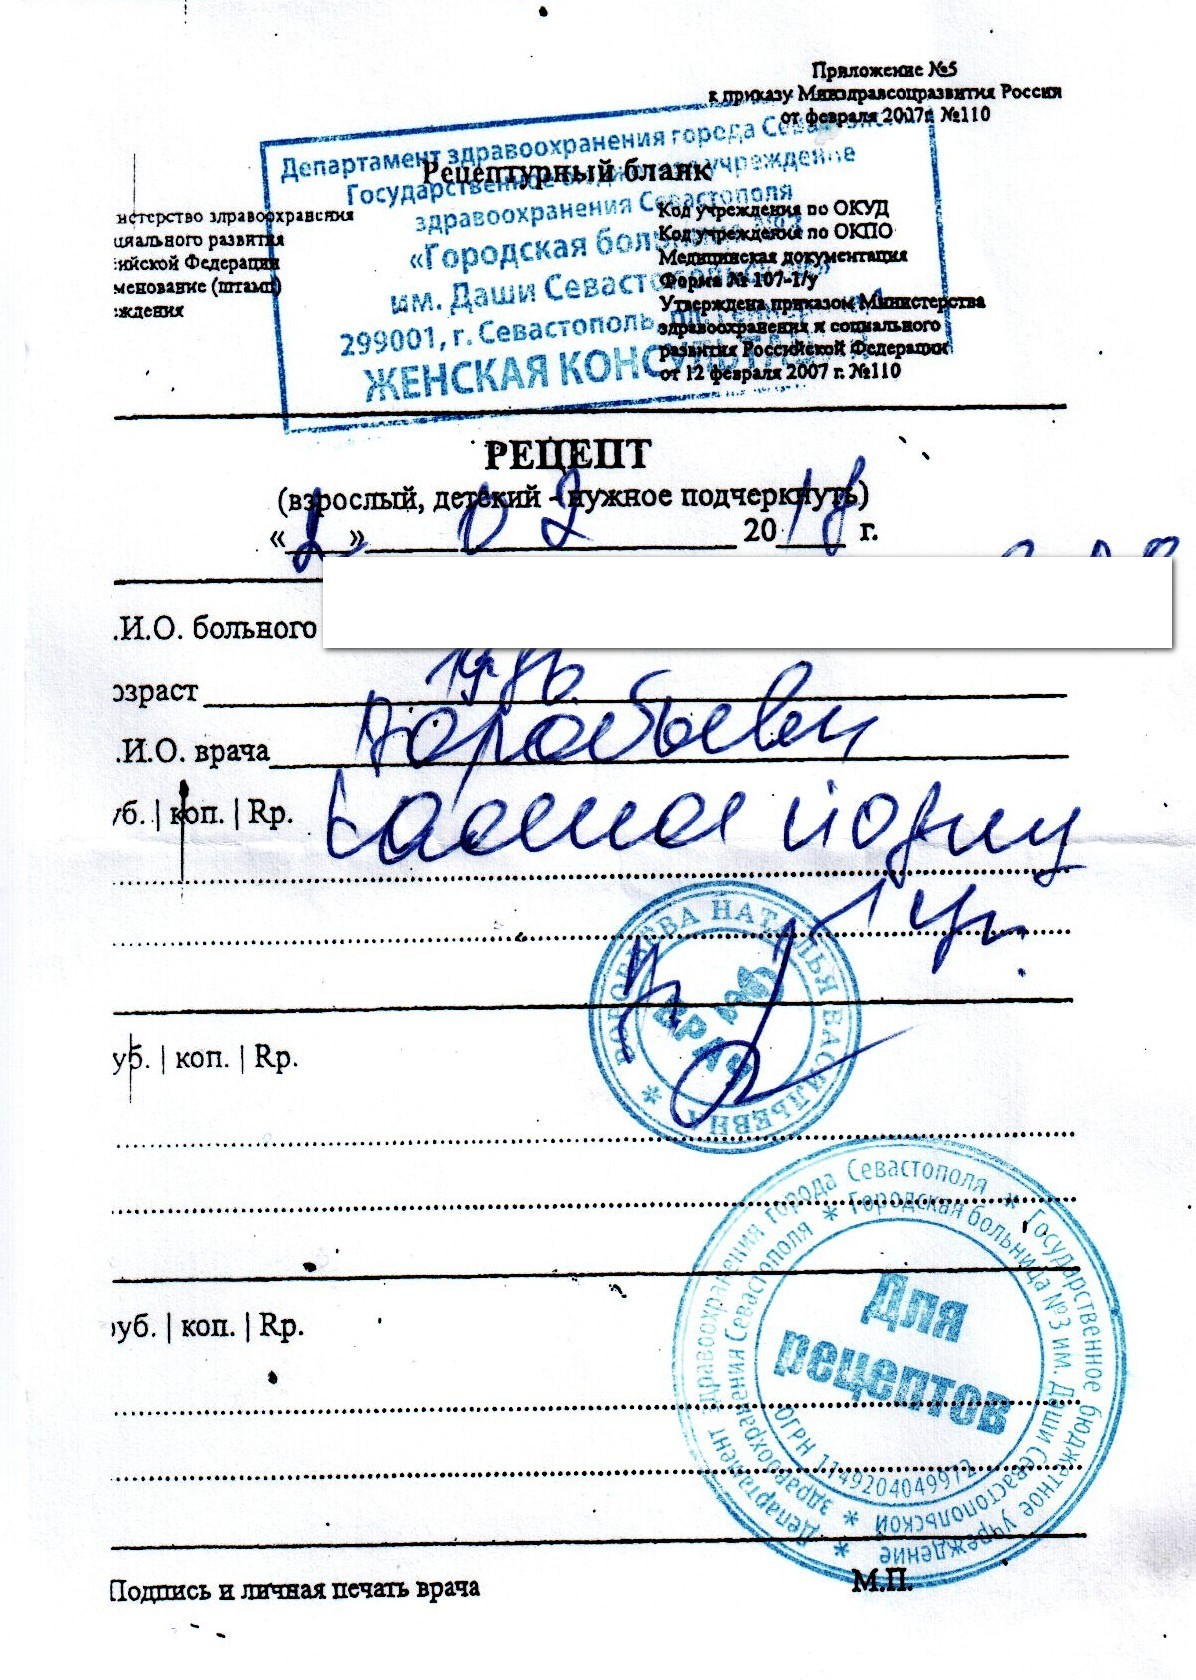 Приложение №5
к приказу Минздравсоцразвития России
от февраля 2007г. №110
Департамент здравоохранения города
Государственное бюджетное учреждение
здравоохранения Севастополя
«Городская больница №3
им. Даши Севастопольской»
299001, г. Севастополь,
ЖЕНСКАЯ КОНСУЛЬТАЦИЯ
Рецептурный бланк
нстерство здравоохранения
циального развития
сийской Федерации
менование (штамп)
ждения
Код учреждения по ОКУД
Код учреждения по ОКПО
Медицинская документация
Форма № 107-1/у
Утверждена приказом Министерства
здравоохранения и социального
развития Российской Федерации
от 12 февраля 2007 г. №110
РЕЦЕПТ
(взрослый, детский - нужное подчеркнуть)
«2» 02 2018 г.
.И.О. больного
озраст
.И.О. врача Воробьева
уб. | коп. | Rp.
ВОРОБЬЕВА НАТАЛЬЯ ВАСИЛЬЕВНА
ВРАЧ
уб. | коп. | Rp.
Департамент здравоохранения города Севастополя * Государственное бюджетное учреждение *
здравоохранения Севастополя * Городская больница №3 им. Даши Севастопольской *
Для
рецептов
ОГРН 1149204049972
руб. | коп. | Rp.
Подпись и личная печать врача
М.П.